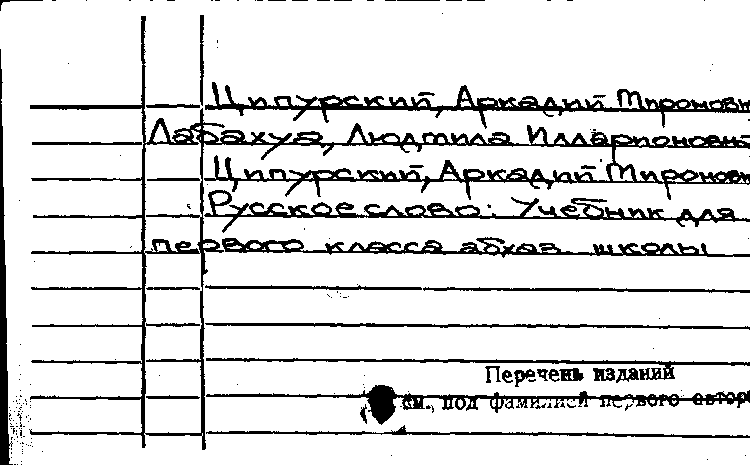 Ципурский, Аркадий Миронови
Лабахуа, Людмила Илларионовна
Ципурский, Аркадий Миронови
Русское слово: Учебник для
первого класса абхаз. школы
Перечень изданий
см. под фамилией первого автора